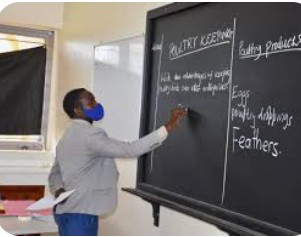 POULTRY KEEPING
Write the advantages of keeping
poultry birds over other enterprises
Poultry products
Eggs
poultry droppings
Feathers.